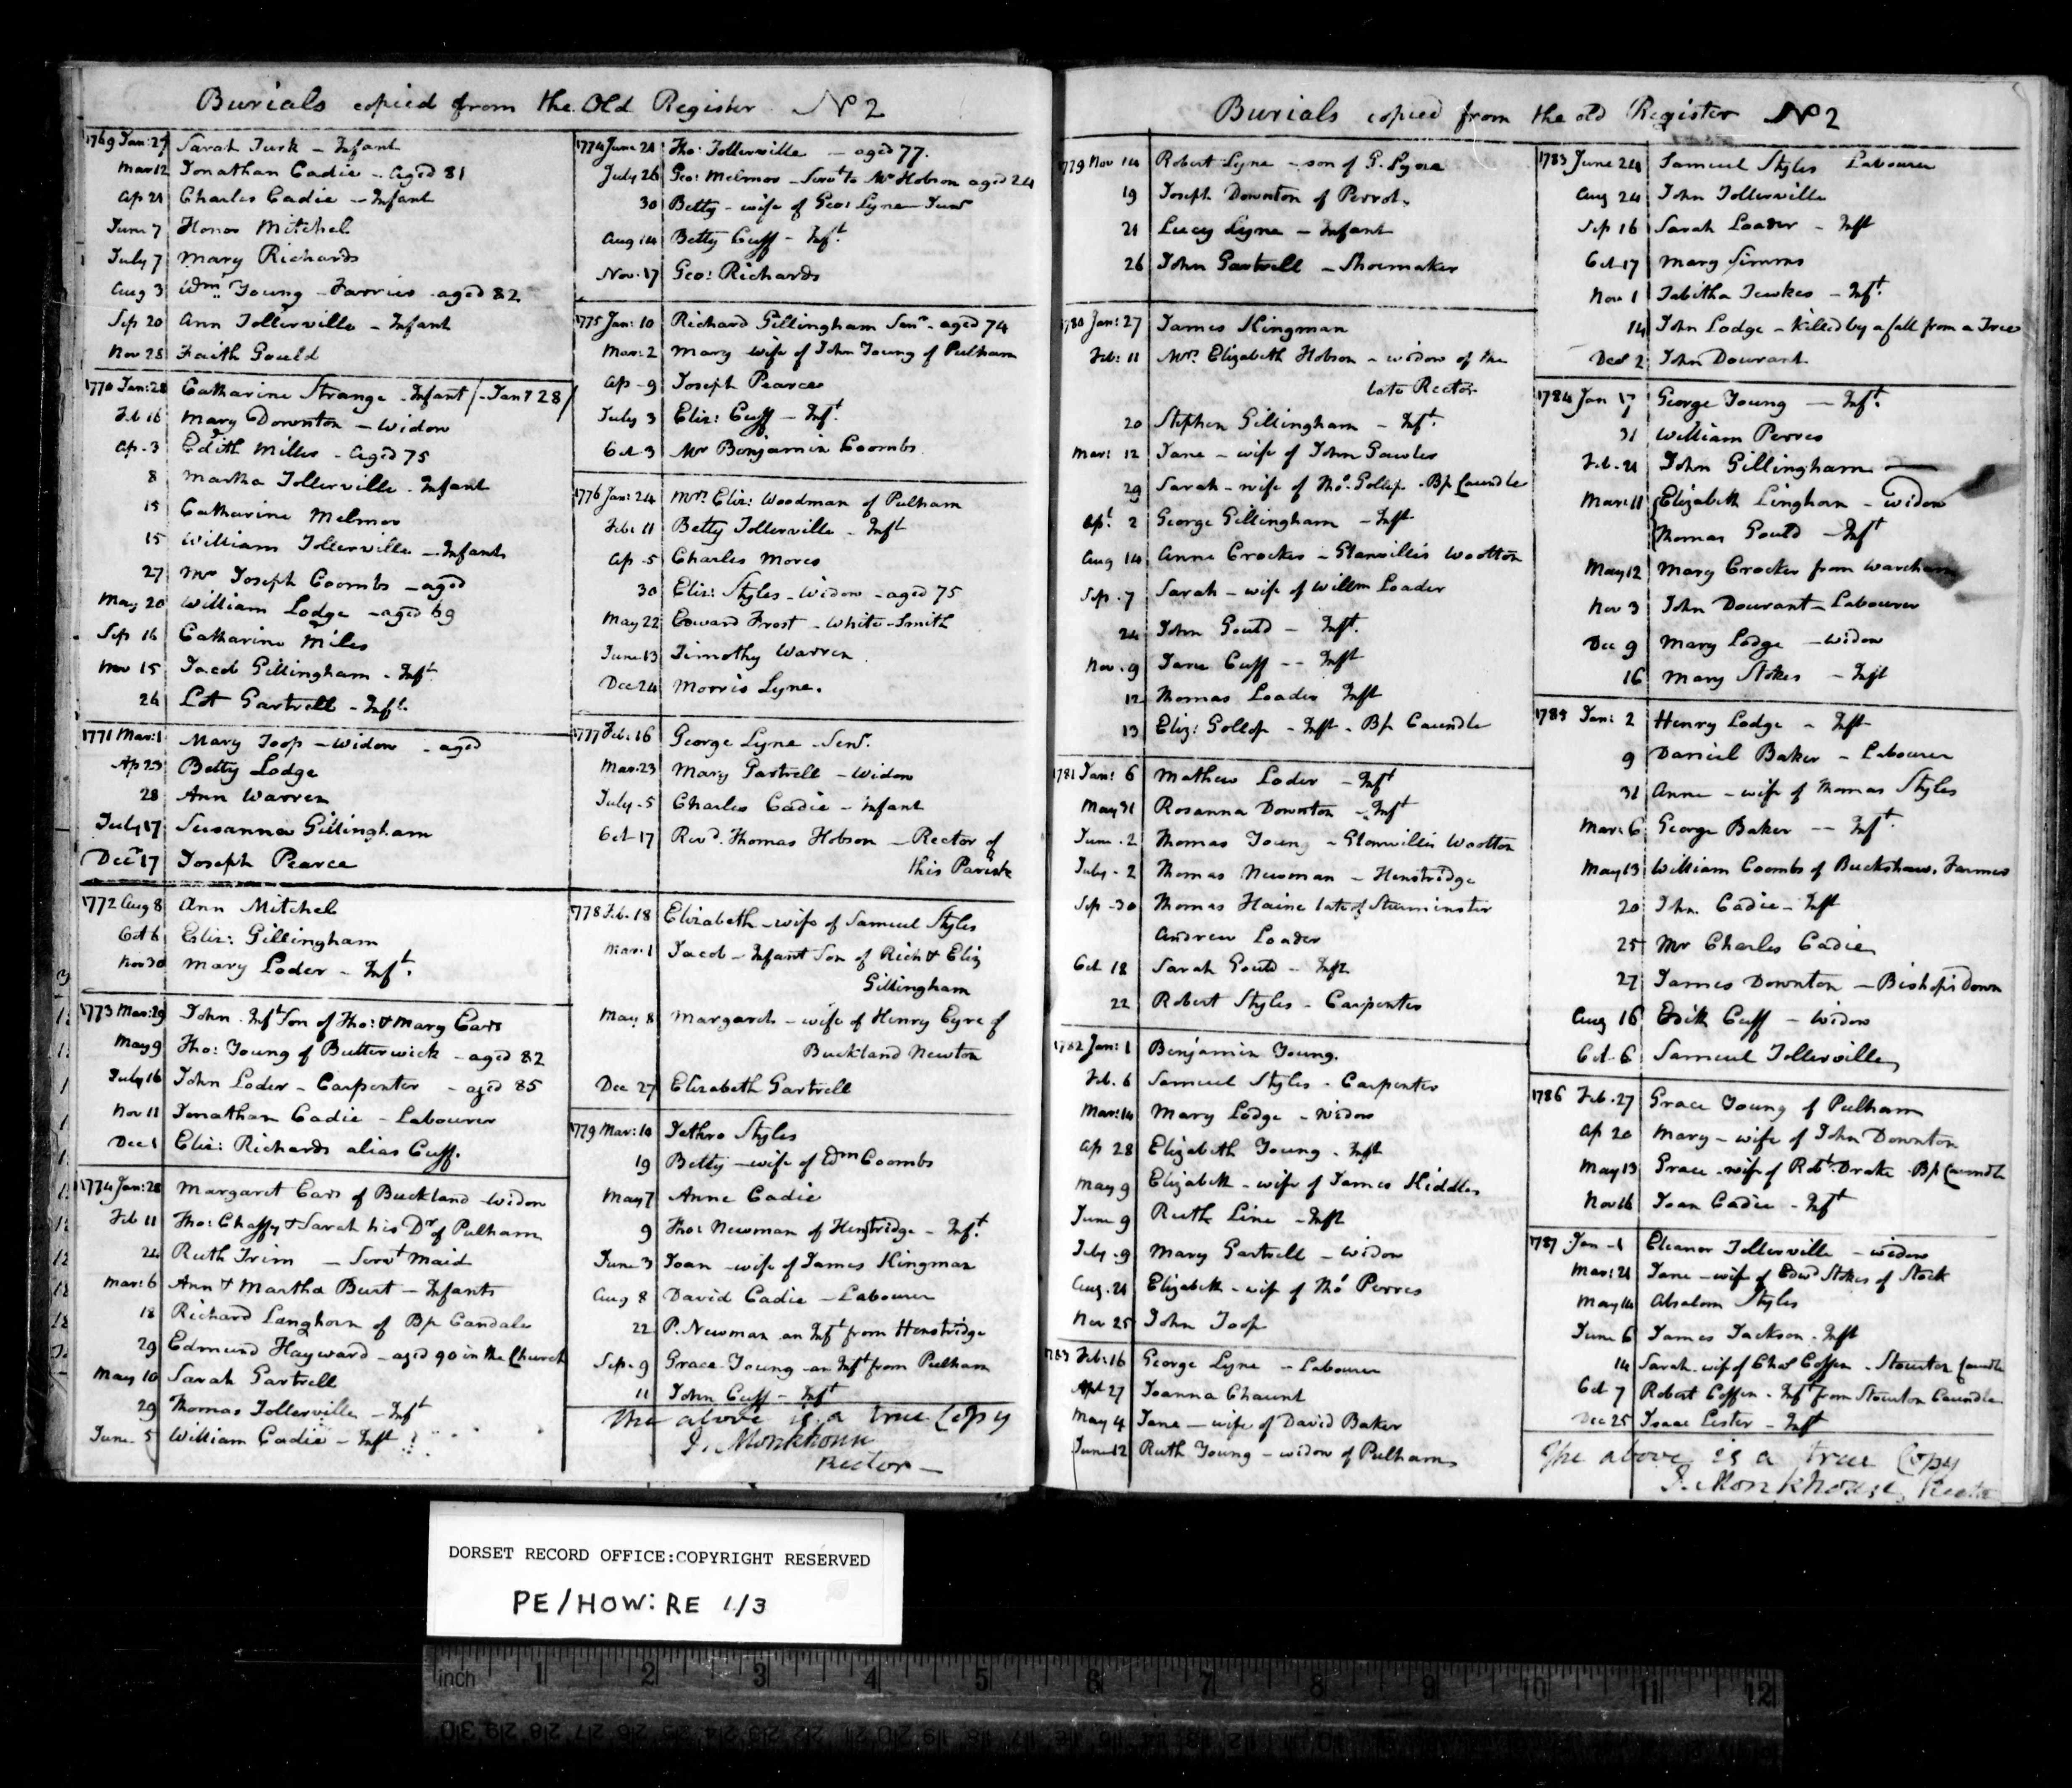 Burials copied from the Old Register No 2
1769 Jan: 27 Sarah Turk - Infant
Mar 12 Jonathan Cadie - aged 81
Ap 21 Charles Cadie - Infant
June 7 Honor Mitchel
July 7 Mary Richards
Aug 3 Wm Young - Farrier - aged 82
Sep 20 Ann Tollerville - Infant
Nov 28 Faith Gould
1770 Jan: 28 Catharine Strange - Infant /- Jany 28/
Feb 16 Mary Downton - Widow
Ap - 3 Edith Miller - aged 75
8 Martha Tollerville - Infant
15 Catharine Melmor
15 William Tollerville - Infant
27 Mr Joseph Coombs - aged
May 20 William Lodge - aged 69
Sep 16 Catharine Miles
Nov 15 Jacob Gillingham - Inft
26 Lot Gartrell - Inft
1771 Mar: 1 Mary Toop - Widow - aged
Ap 23 Betty Lodge
28 Ann Warren
July 17 Susanna Gillingham
Decr 17 Joseph Pearce
1772 Aug 8 Ann Mitchel
Oct 6 Eliz: Gillingham
Nov 30 Mary Loder - Inft.
1773 Mar: 29 John - Inft Son of Tho: & Mary Cars
May 9 Tho: Young of Butterwick - aged 82
July 16 John Loder - Carpenter - aged 85
Nov 11 Jonathan Cadie - Labourer
Dec 1 Eliz: Richards alias Cuff.
1774 Jan: 28 Margaret Cars of Buckland - Widow
Feb 11 Tho: Chaffy & Sarah his Dr of Pulham
24 Ruth Trim - Servt Maid
Mar: 6 Ann & Martha Burt - Infants
18 Richard Langhorn of Bp Candale
29 Edmund Hayward - aged 90 in the Church
May 10 Sarah Gartrell
29 Thomas Tollerville - Inft
June 5 William Cadie - Inft
1774 June 21 Tho: Tollerville - aged 77.
July 26 Geo: Melmor - Servt to Mr Hobson aged 24
30 Betty - wife of Geo: Lyne - Junr
Aug 14 Betty Cuff - Inft.
Nov. 17 Geo: Richards
1775 Jan: 10 Richard Gillingham Senr - aged 74
Mar: 2 Mary wife of John Young of Pulham
Ap - 9 Joseph Pearce
July 3 Eliz: Cuff - Inft
Oct 3 Mr Benjamin Coombs
1776 Jan: 24 Mrs Eliz: Woodman of Pulham
Feb: 11 Betty Tollerville - Inft
Ap - 5 Charles Mores
30 Eliz: Styles - Widow - aged 75
May 22 Edward Frost - White-Smith
June 13 Timothy Warren
Dec 24 Morris Lyne.
1777 Feb: 16 George Lyne - Senr.
Mar: 23 Mary Gartrell - Widow
July - 5 Charles Cadie - Infant
Oct 17 Revd. Thomas Hobson - Rector of
this Parish
1778 Feb. 18 Elizabeth - wife of Samuel Styles
Mar: 1 Jacob - Infant Son of Rich & Eliz
Gillingham
May 8 Margaret - wife of Henry Eyre of
Buckland Newton
Dec 27 Elizabeth Gartrell
1779 Mar: 10 Jethro Styles
19 Betty - wife of Edm Coombs
May 7 Anne Cadie
9 Tho: Newman of Henstridge - Inft.
June 3 Joan - wife of James Kingman
Aug 8 David Cadie - Labourer
22 P. Newman an Inft from Henstridge
Sep. 9 Grace Young - an Inft from Pulham
11 John Cuff - Inft
The above is a true Copy
J. Monkhouse
Rector -
Burials copied from the old Register No 2
1779 Nov 14 Robert Lyne - son of G. Lyne
19 Joseph Downton of Perrot.
21 Lucy Lyne - Infant
26 John Gartrell - Shoemaker
1780 Jan: 27 James Kingman
Feb: 11 Mrs. Elizabeth Hobson - widow of the
late Rector
20 Stephen Gillingham - Inft.
Mar: 12 Jane - wife of John Gawler
29 Sarah - wife of Tho. Gollop - Bp Caundle
Apl. 2 George Gillingham - Inft
Aug 14 Anne Crocker - Glanvillis Wootton
Sep. 7 Sarah - wife of Willm Loader
24 John Gould - Inft.
Nov. 9 Jane Cuff - - Inft
12 Thomas Loader Inft
13 Eliz: Gollop - Inft - Bp Caundle
1781 Jan: 6 Mathew Loder - Inft
May 31 Rosanna Downton - Inft
June . 2 Thomas Young - Glanvillis Wootton
July - 2 Thomas Newman - Henstridge
Sep - 30 Thomas Haine late of Sturminster
Andrew Loader
Oct 18 Sarah Gould - Inft
22 Robert Styles - Carpenter
1782 Jan: 1 Benjamin Young.
Feb. 6 Samuel Styles - Carpenter
Mar: 14 Mary Lodge - Widow
Ap 28 Elizabeth Young - Inft
May 9 Elizabeth - wife of James Hiddles
June 9 Ruth Line - Inft
July . 9 Mary Gartrell - Widow
Aug. 21 Elizabeth - wife of Tho Perres
Nov 25 John Toop
1783 Feb: 16 George Lyne - Labourer
Apl 27 Joanna Chaunt
May 4 Jane - wife of David Baker
June 12 Ruth Young - widow of Pulham
1783 June 24 Samuel Styles Labourer
Aug 24 John Tollerville
Sep 16 Sarah Loader - Inft
Oct 17 Mary Simms
Nov 1 Tabitha Tewkes - Inft.
14 John Lodge - killed by a fall from a Tree
Dec 2 John Dourant
1784 Jan 17 George Young - Inft.
31 William Perres
Feb. 21 John Gillingham
Mar: 11 Elizabeth Linghorn - Widow
Thomas Gould - Inft
May 12 Mary Crocker from Wareham
Nov 3 John Dourant - Labourer
Dec 9 Mary Lodge - Widow
16 Mary Stokes - Inft
1785 Jan: 2 Henry Lodge - Inft
9 Daniel Baker - Labourer
31 Anne - wife of Thomas Styles
Mar: 6 George Baker - - Inft.
May 13 William Coombs of Buckshaw. Farmer
20 Jhn. Cadie - Inft
25 Mr Charles Cadie
27 James Downton - Bishops down
Aug 16 Edith Cuff - Widow
Oct 6 Samuel Tollerville
1786 Feb. 27 Grace Young of Pulham
Ap 20 Mary - wife of John Downton
May 13 Grace - wife of Robt Drake - Bp Caundle
Nov 16 Joan Cadie - Inft
1787 Jan - 1 Eleanor Tollerville - widow
Mar: 21 Jane - wife of Edwd Stokes of Stock
May 14 Absalom Styles
June 6 James Jackson - Inft
14 Sarah - wife of Chas Coffin - Stourton Caundle
Oct 7 Robert Coffin - Inft from Stourton Caundle
Dec 25 Isaac Lester - Inft
The above is a true Copy
J. Monkhouse, Rector
DORSET RECORD OFFICE:COPYRIGHT RESERVED
PE/HOW:RE 1/3
inch 1 2 3 4 5 6 7 8 9 10 11 12